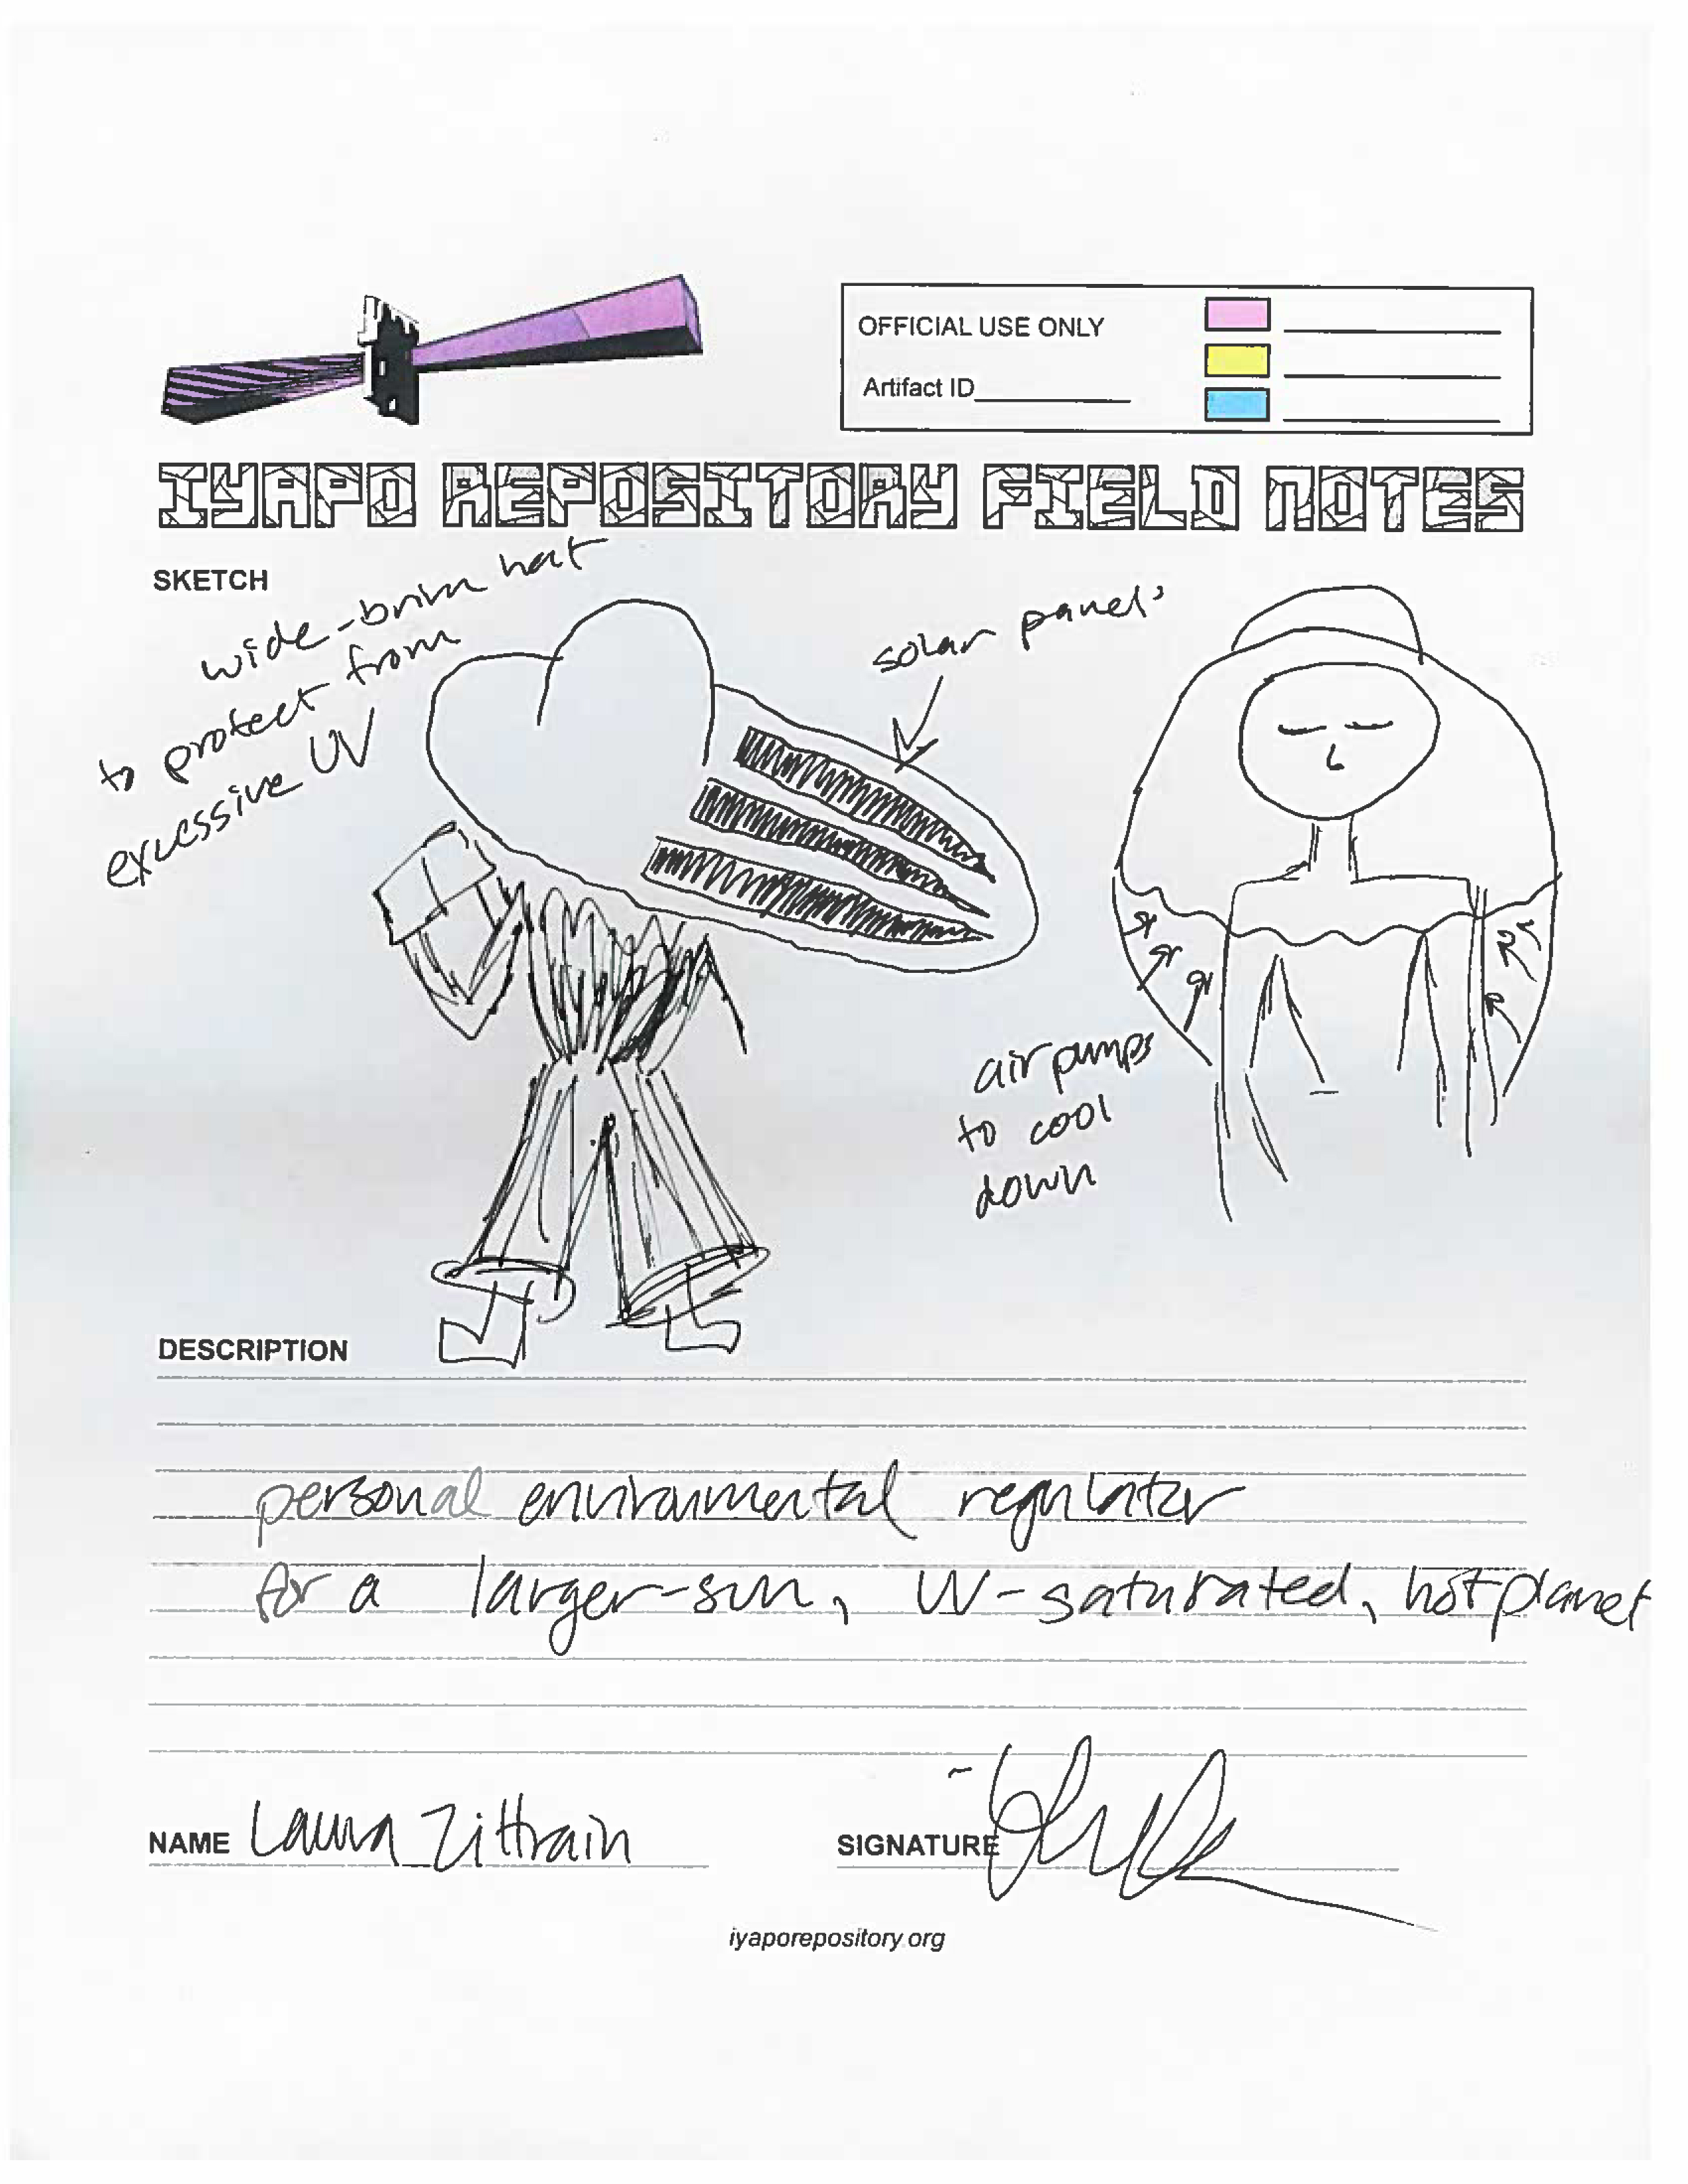 OFFICIAL USE ONLY
Artifact ID
IYAPO REPOSITORY FIELD NOTES
SKETCH
wide-brim hat
to protect from
excessive UV
solar panels
air pumps
to cool
down
DESCRIPTION
personal environmental regulator
for a larger-sun, UV-saturated, hot planet
NAME Laura Zittrain
SIGNATURE
iyaporepository.org